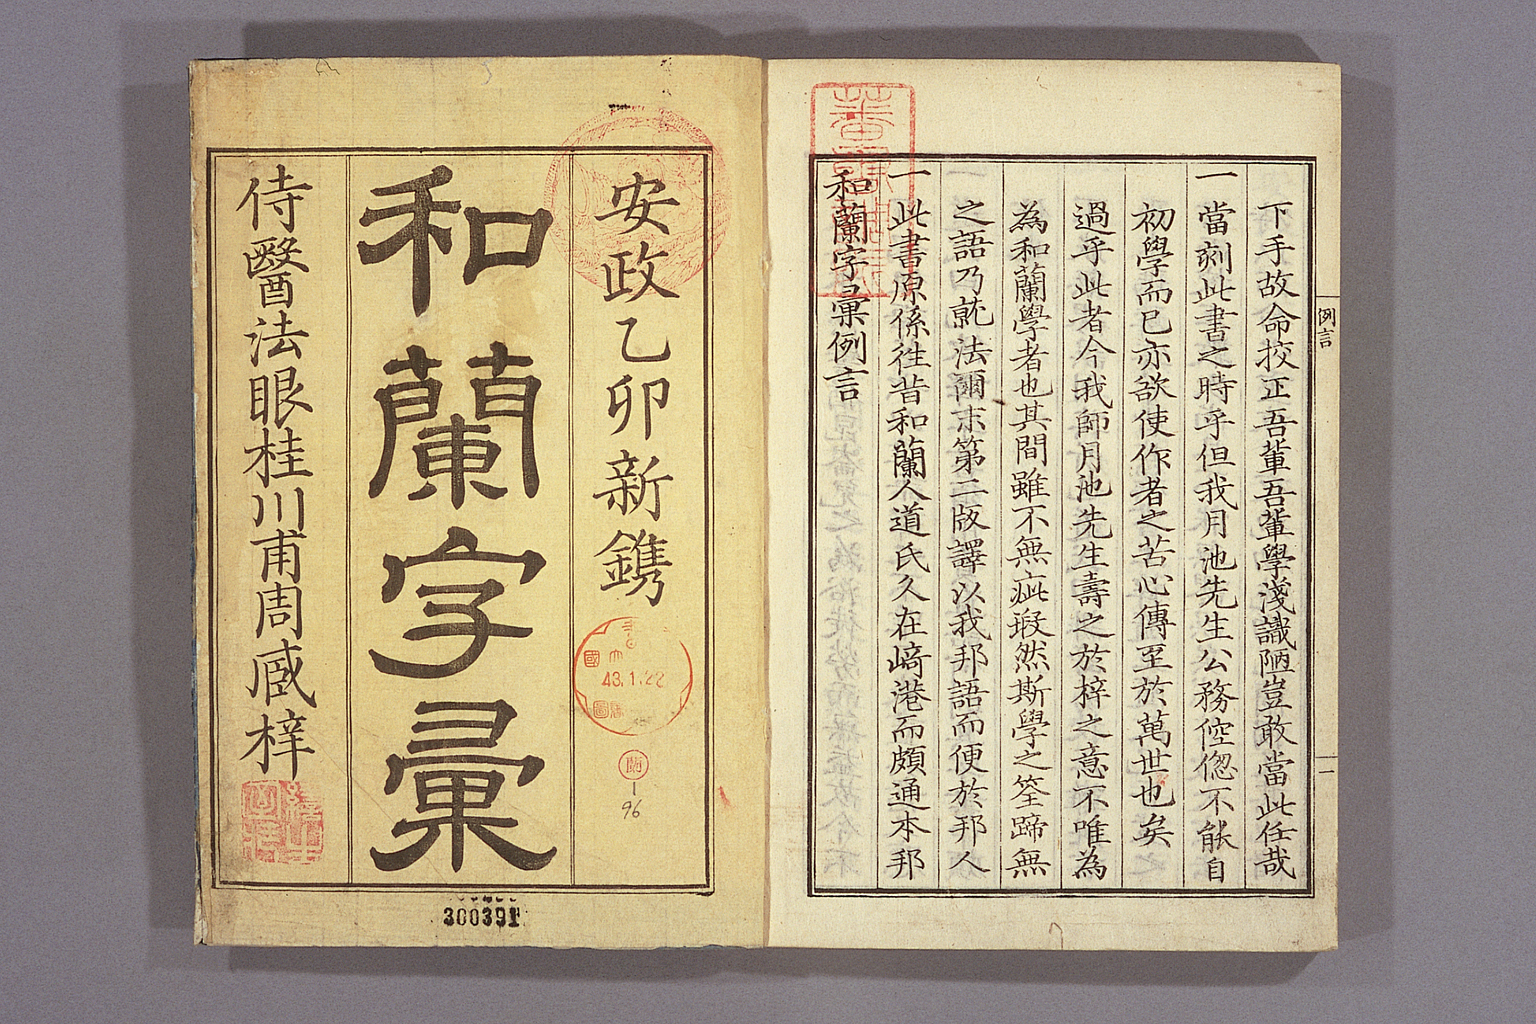 安政乙卯新鐫
和蘭字彙
侍醫法眼桂川甫周臧梓
43.1.22
蘭
1
96
300391
和蘭字彙例言
一此書原係往昔和蘭人道氏久在崎港而頗通本邦
之語乃就法爾末第二版譯以我邦語而便於邦人
為和蘭學者也其間雖不無疵瑕然斯學之筌蹄無
過乎此者今我師月池先生壽之於梓之意不唯為
初學而已亦欲使作者之苦心傳至於萬世也矣
一當刻此書之時乎但我月池先生公務倥偬不能自
下手故命挍正吾輩吾輩學淺識陋豈敢當此任哉
例言
一